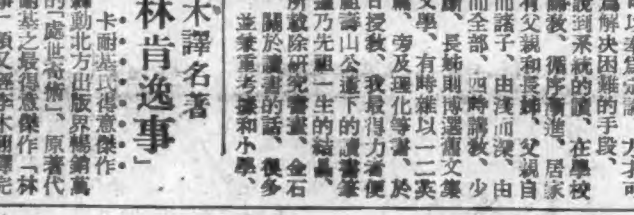 爲解決困難的手段、
說到系統的讀、在學校
聽教、循序漸進、居家
有父親和長姊、父親自
而諸子、由淺而深、由
而全部、四時講教、少
、長姊則博選舊文集
文學、有時雜以一二英
、旁及理化等書、於
日授教、我最得力者便
祖壽山公遺下的讀書筆
乃先祖一生的結晶、
所載除研究書畫、金石
關於讀書的話、很多
並兼重考據和小學、
木譯名著
林肯逸事」
卡耐基氏得意傑作
動北方出版界暢銷萬
的「處世奇術」、原著代
耐基之最得意傑作「林
事一項又經李木翻譯完